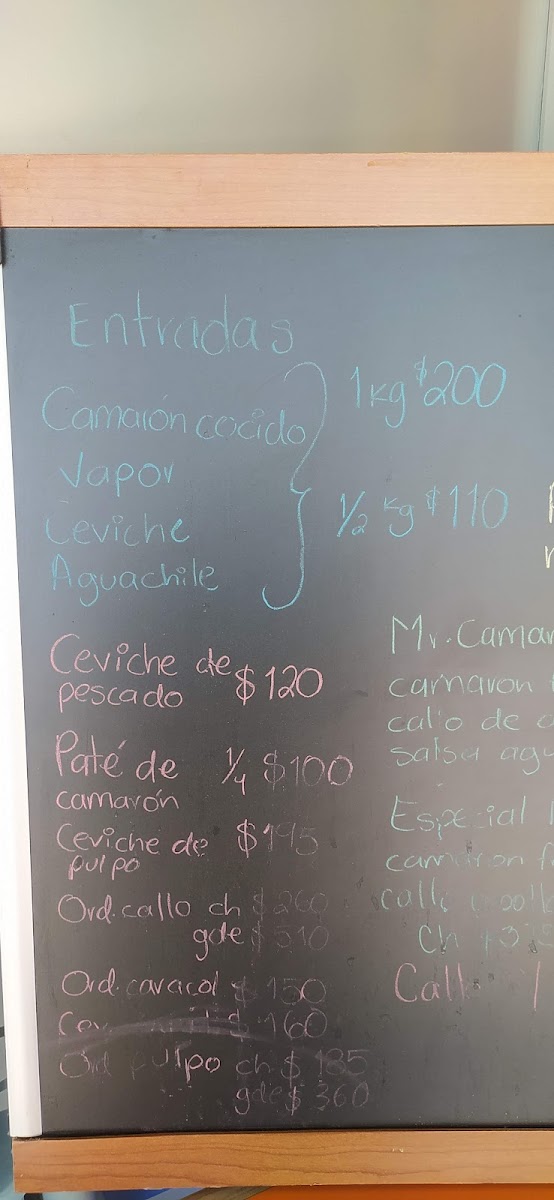 Entradas
Camarón cocido
Vapor
Ceviche
Aguachile
1 kg $200
1/2 kg $110
Ceviche de
pescado $120
Paté de
camarón 1/4 $100
Ceviche de
pulpo $195
Ord. callo ch $260
gde $510
Ord. caracol $150
$160
Ord pulpo ch $185
gde $360
Mr. Camar
camaron
callo de
salsa agu
Especial
camaron f
callo
ch
Call